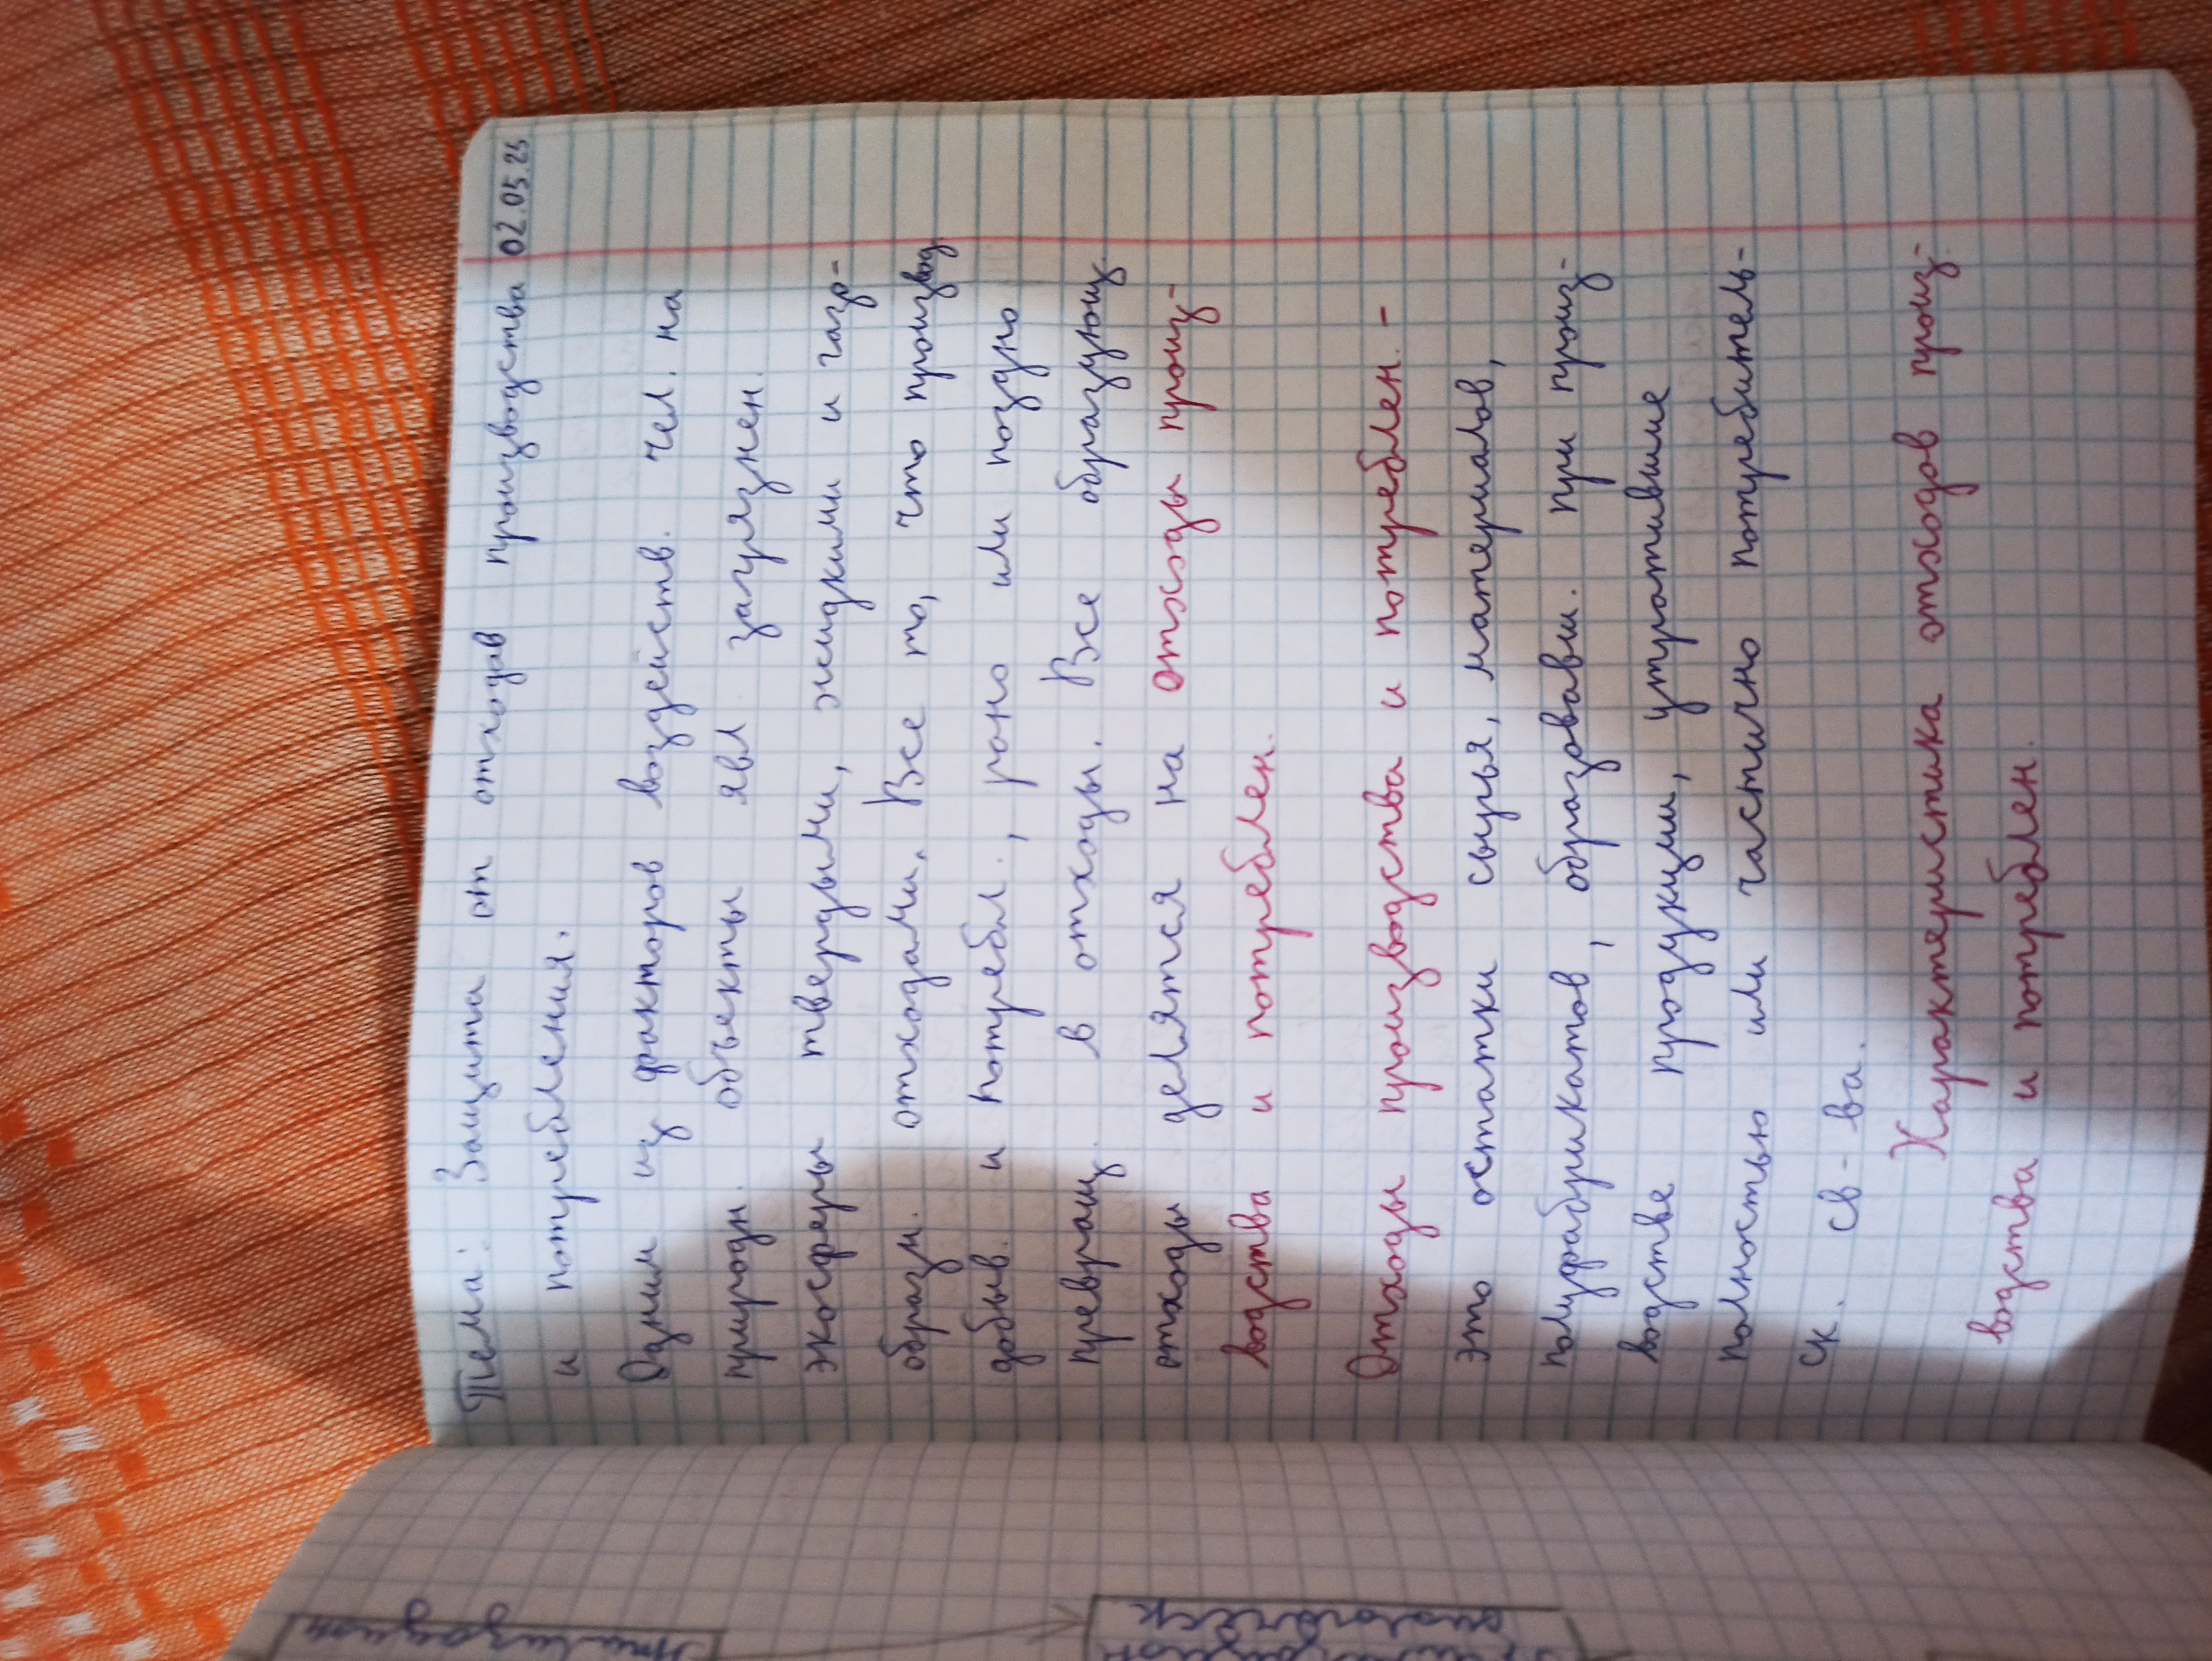 Тема: Защита от отходов производства 02.05.25
и потребления.
Одним из факторов воздейств. чел. на
природн. объекты явл загрязнен.
экосферы твердыми, жидкими и газо-
образн. отходами. Все то, что производ.
добыв. и потребл., рано или поздно
превращ. в отходы. Все образующ.
отходы делятся на отходы произ-
водства и потреблен.
Отходы производства и потреблен. -
это остатки сырья, материалов,
полуфабрикатов, образовавш. при произ-
водстве продукции, утратившие
полностью или частично потребитель-
ск. св-ва.
Характеристика отходов произ-
водства и потреблен.